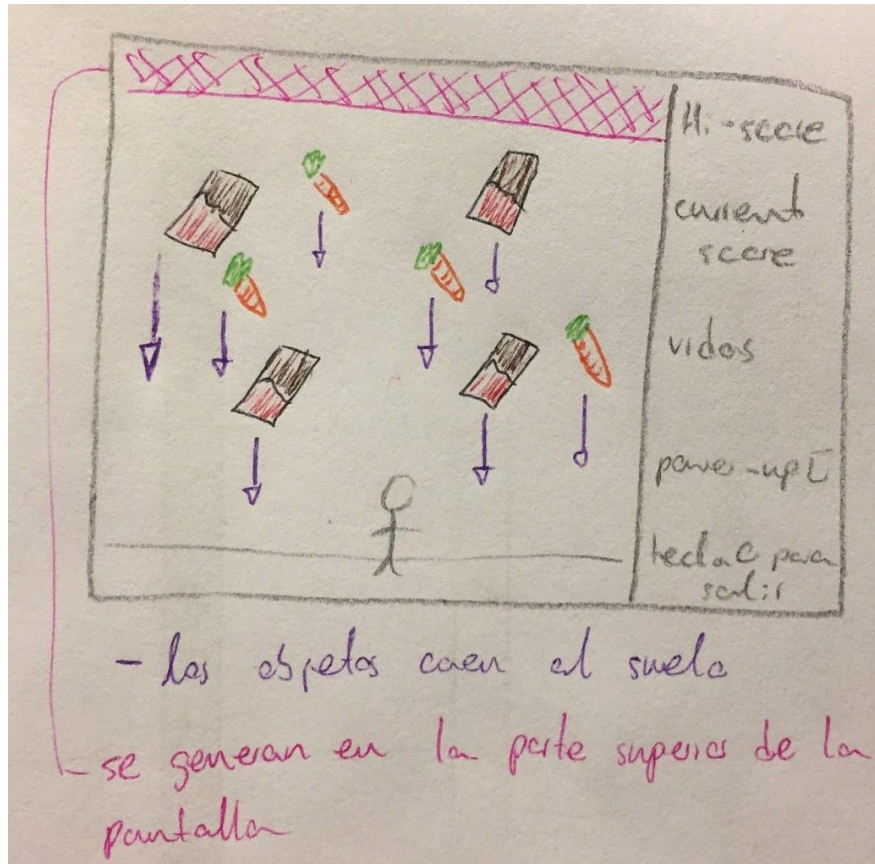 Hi-score
current
score
vidas
power-up
tecla C para
salir
- los objetos caen al suelo
- se generan en la parte superior de la
pantalla